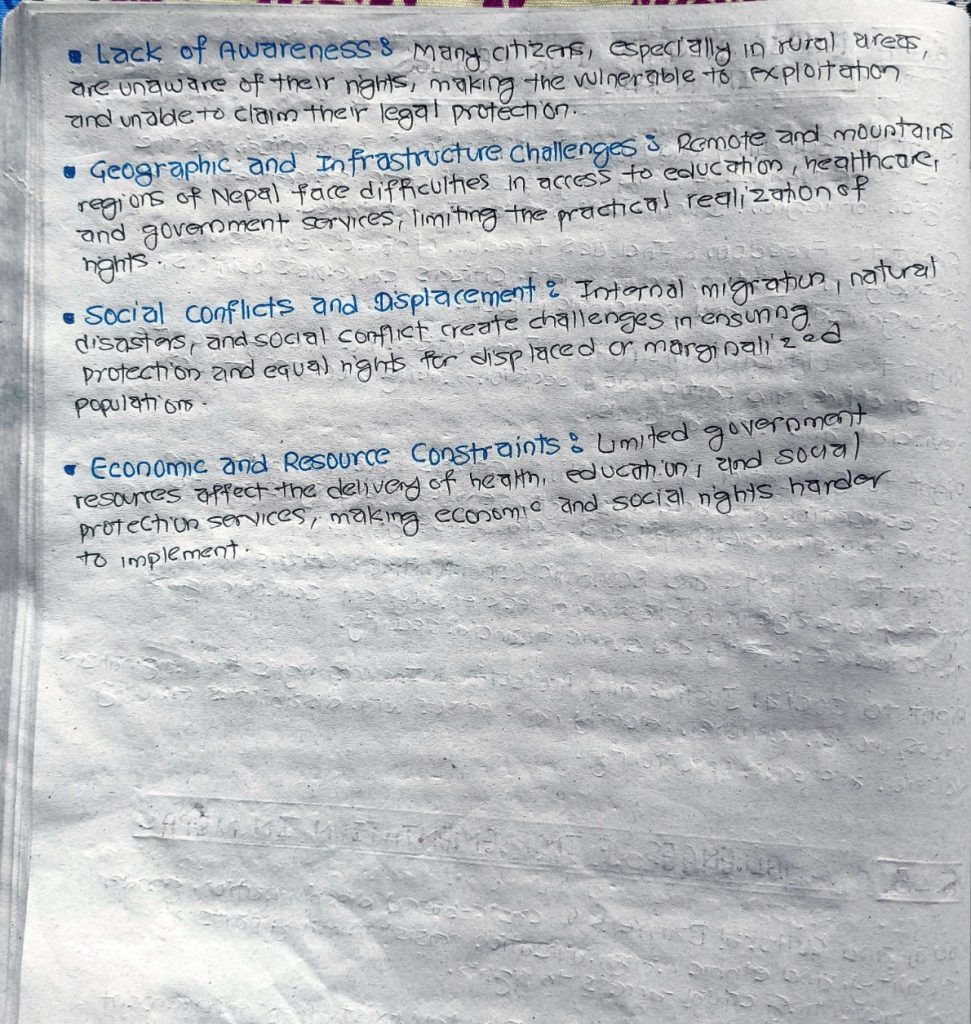 ▪ Lack of Awareness : Many citizens, especially in rural areas,
are unaware of their rights, making the vulnerable to exploitation
and unable to claim their legal protection.
▪ Geographic and Infrastructure Challenges : Remote and mountains
regions of Nepal face difficulties in access to education, healthcare,
and government services, limiting the practical realization of
rights.
▪ Social Conflicts and Displacement : Internal migration, natural
disasters, and social conflict create challenges in ensuring
protection and equal rights for displaced or marginalized
populations.
▪ Economic and Resource Constraints : Limited government
resources affect the delivery of health, education, and social
protection services, making economic and social rights harder
to implement.